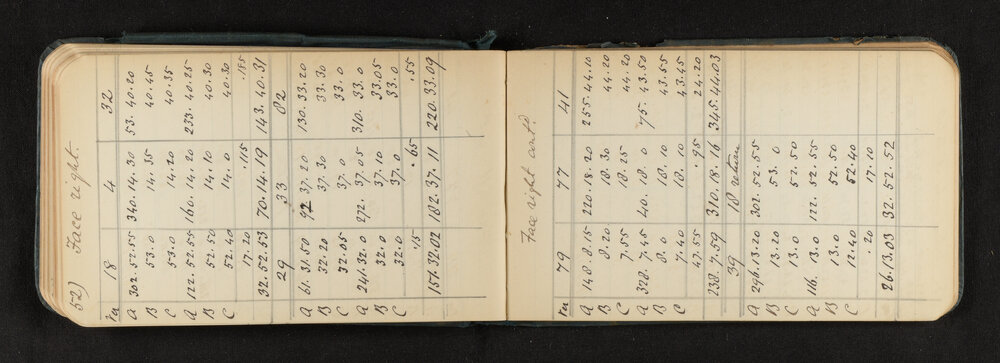 52) Face right.
Fa 18 4 32
A 302.52.55 340.14.30 53.40.20
B 53.0 14.35 40.45
C 53.0 14.20 40.35
A 122.52.55 160.14.20 233.40.25
B 52.50 14.10 40.30
C 52.40 14.0 40.30
17.20 .115 .185
32.52.53 70.14.19 143.40.31
29 33 82
A 61.31.50 92.37.20 130.33.20
B 32.20 37.30 33.30
C 32.05 37.0 33.0
A 241.32.0 272.37.05 310.33.0
B 32.0 37.10 33.05
C 32.0 37.0 33.0
.15 .65 .55
151.32.02 182.37.11 220.33.09
Face right cont?
Fa 79 77 41
A 148.8.15 220.18.20 255.44.10
B 8.20 18.30 44.20
C 7.55 18.25 44.20
A 328.7.45 40.18.10 75.43.50
B 8.0 18.10 43.55
C 7.40 18.10 43.45
47.55 .95 24.20
238.7.59 310.18.16 345.44.03
39 18 return
A 296.13.20 302.52.55
B 13.0 53.0
C 13.0 52.50
A 116.13.0 122.52.55
B 13.0 52.50
C 12.40 52.40
.20 17.10
26.13.03 32.52.52